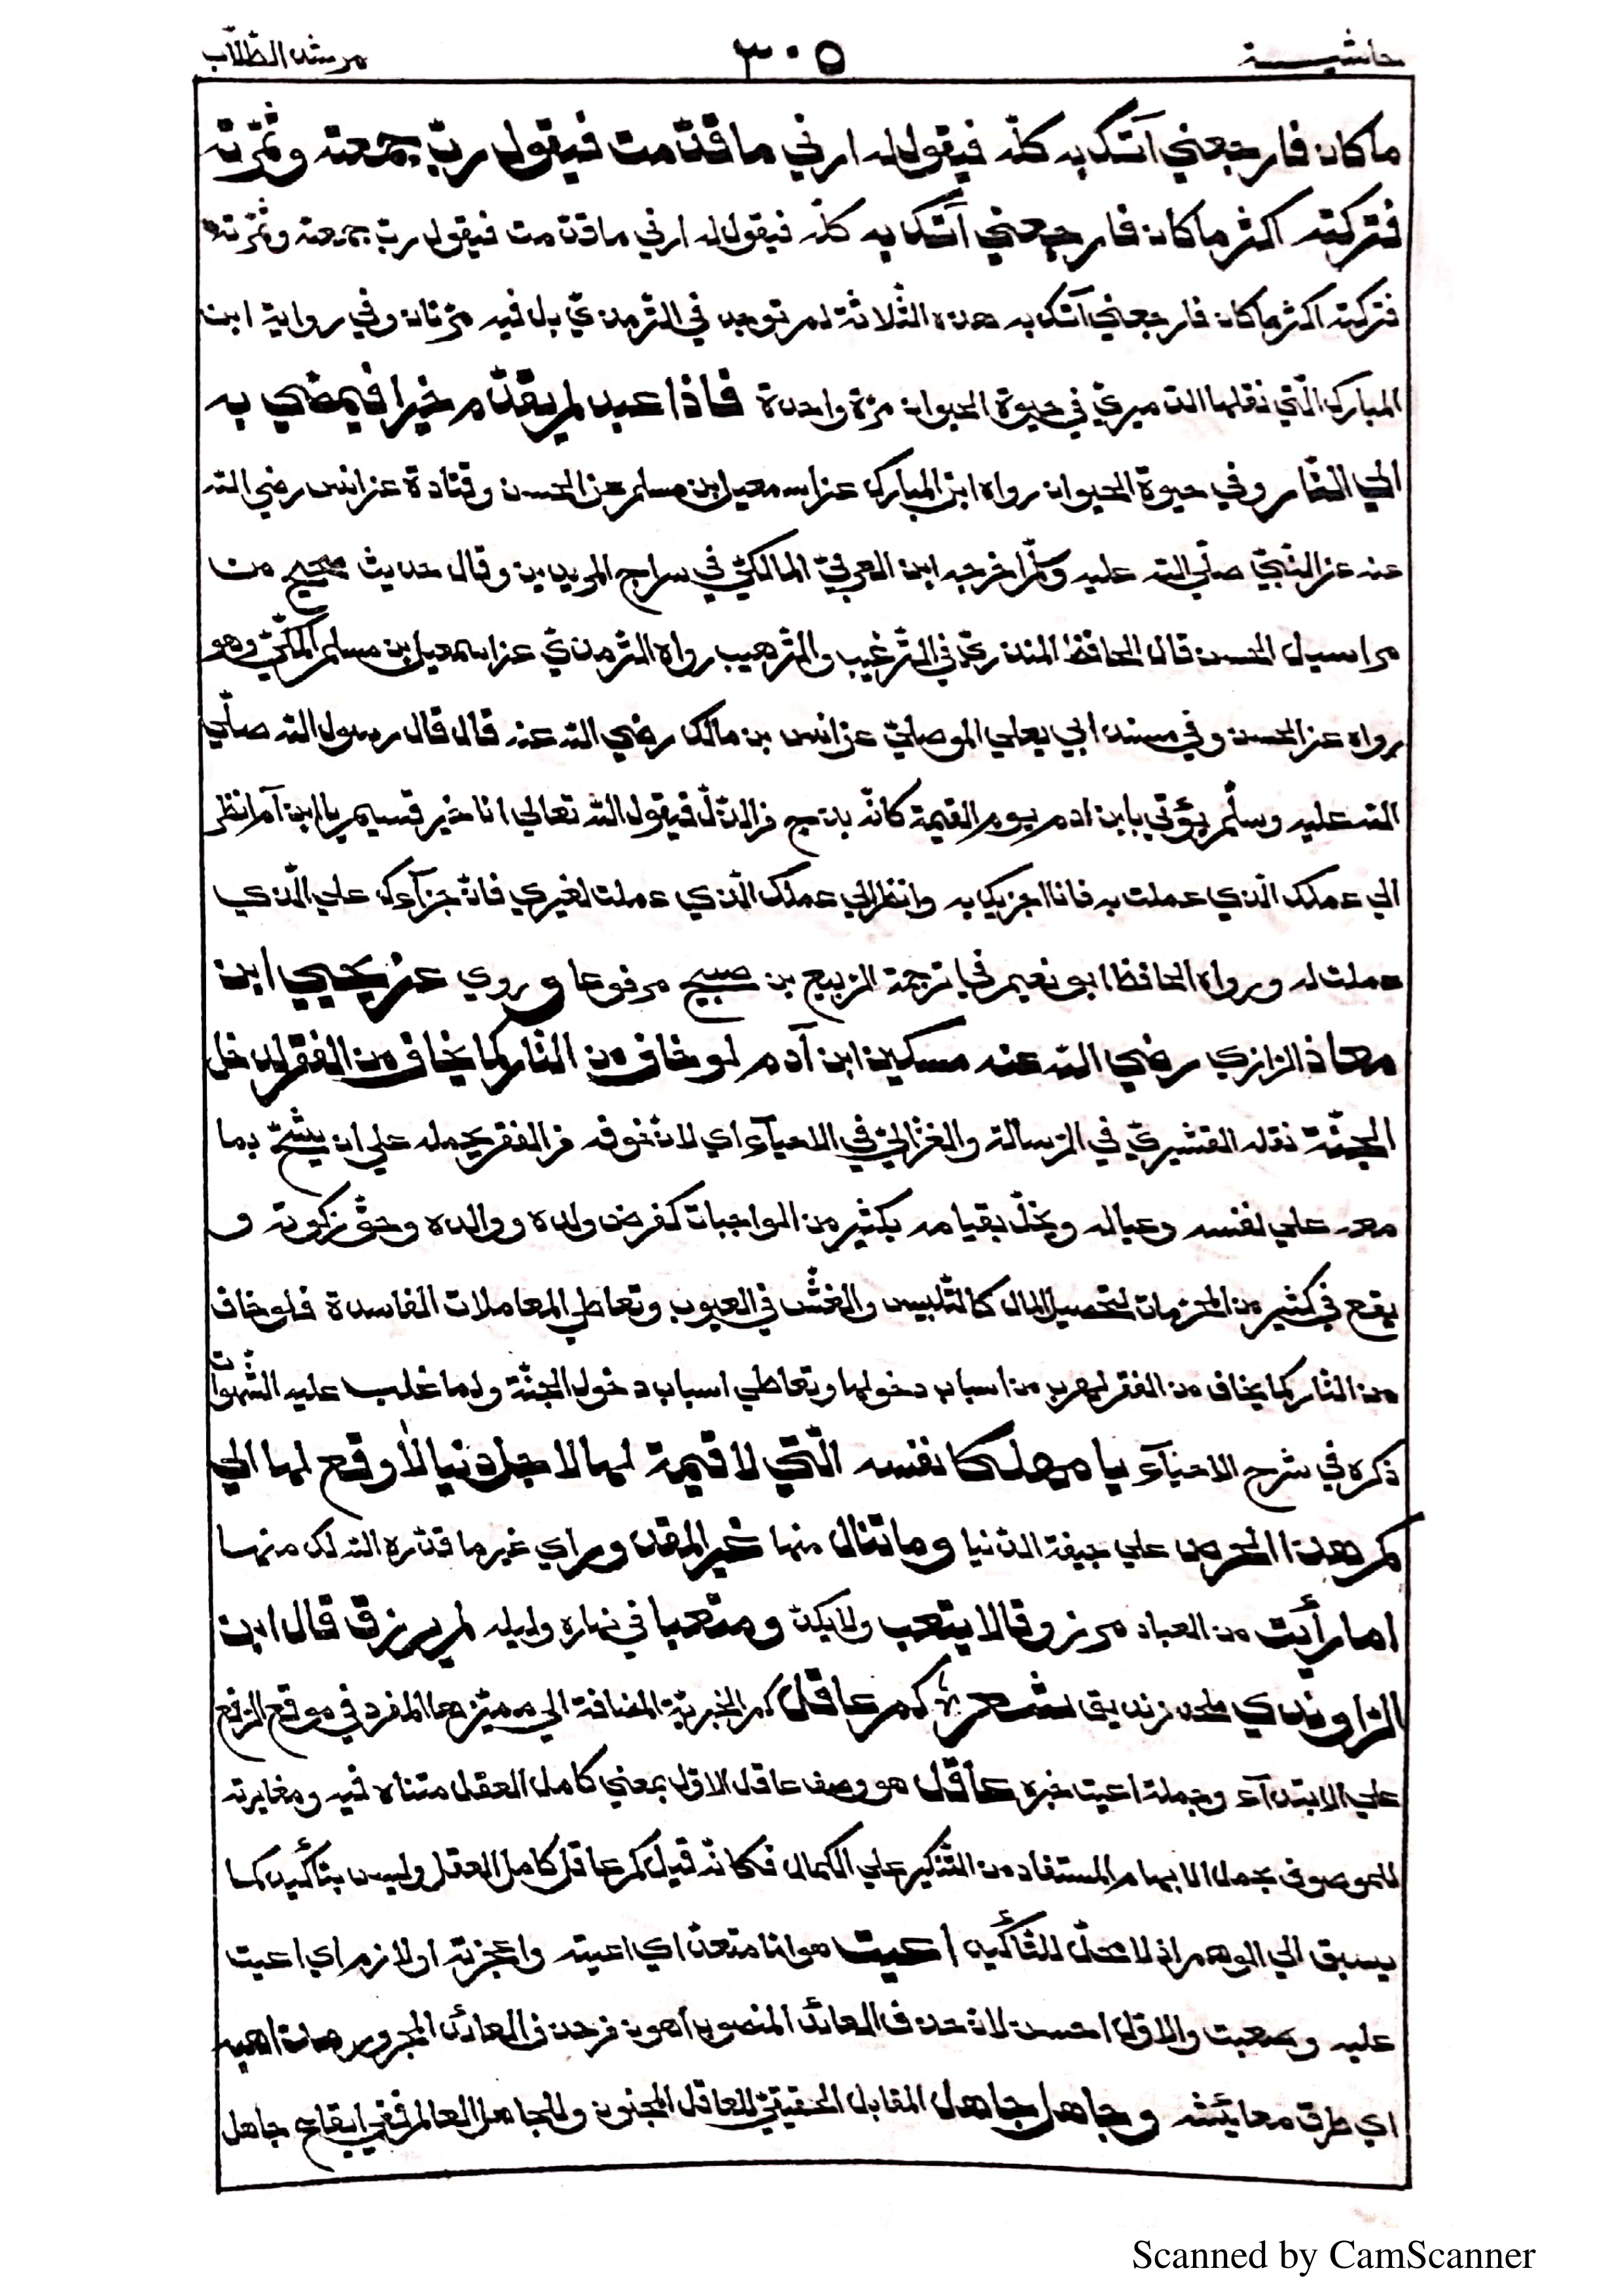 حاشيـــة ٣٠٥ مرشد الطّلّاب
ما كان فارجعني آتك به كلّه فيقول له ارني ما قدّمت فيقول ربّ جمعته وثمّرته
فتركته اكثر ما كان فارجعني آتك به كلّه فيقول له ارني ما قدّمت فيقول ربّ جمعته وثمّرته
فتركته اكثر ما كان فارجعني آتك به هذه الثّلاثة لم توجد في التّرمذيّ بل فيه مرّتان وفي رواية ابن
المبارك الّتي نقلها الدّميريّ في حيوة الحيوان مرّة واحدة فاذا عبد لم يقدّم خيرا فيمضي به
الي النّار وفي حيوة الحيوان رواه ابن المبارك عن اسمعيل بن مسلم عن الحسن وقتادة عن انس رضي الله
عنه عن النّبيّ صلّي الله عليه وسلّم اخرجه ابن العربيّ المالكيّ في سراج المريدين وقال حديث صحيح من
مراسيل الحسن قال الحافظ المنذريّ في التّرغيب والتّرهيب رواه التّرمذيّ عن اسمعيل بن مسلم المكّيّ وهو
رواه عن الحسن وفي مسند ابي يعلي الموصليّ عن انس بن مالك رضي الله عنه قال قال رسول الله صلّي
الله عليه وسلّم يؤتي بابن ادم يوم القيمة كانّه بذج من الذّلّ فيقول الله تعالي انا خير قسيم يا ابن آدم انظر
الي عملك الّذي عملت به فانا اجزيك به وانظر الي عملك الّذي عملت لغيري فانّ جزآءك علي الّذي
عملت له ورواه الحافظ ابو نعيم في ترجمة الرّبيع بن صبيح مرفوعا وروي عن يحيي ابن
معاذ الرّازي رضي الله عنه مسكين ابن آدم لو خاف من النّار كما يخاف من الفقر لدخل
الجنّة نقله القشيريّ في الرّسالة والغزّاليّ في الاحيآء اي لانّ خوفه من الفقر يحمله علي ان يشحّ بما
معه علي نفسه وعياله ويخلّ بقيامه بكثير من الواجبات كفرض ولده ووالده وحقّ زكوته و
يقع في كثير من المحرّمات لتحصيل المال كالتّلبيس والغشّ في العيوب وتعاطي المعاملات الفاسدة فلو خاف
من النّار كما يخاف من الفقر لهرب من اسباب دخولها وتعاطي اسباب دخول الجنّة ولما غلب عليه الشّهوات
ذكره في شرح الاحيآء يا مهلكا نفسه الّتي لا قيمة لها لاجل دنيا لا وقع لها الي
كم هذا الحرص علي جيفة الدّنيا وما تنال منها غير المقدور اي غير ما قدّره الله لك منها
اما رأيت من العباد مرزوقا لا يتعب ولا يكدّ ومتعبا في نهاره وليله لم يرزق قال ابن
الرّاوندي ملحد زنديق شعر كم عاقل كم الخبريّة المضافة الي مميّزها المفرد في موقع الرّفع
علي الابتدآء وجملة اعيت خبره عاقل هو وصف عاقل الاوّل بمعني كامل العقل متناه فيه ومغايرته
للموصوف بحمل الابهام المستفاد من التّنكير علي الكمال فكانّه قيل كم عاقل كامل العقل وليس بتأكيد كما
يسبق الي الوهم اذ لا محلّ للتّأكيد اعيت هو امّا متعدّ اي اعيته واعجزته او لازم اي اعيت
عليه وصعبت والاوّل احسن لانّ حذف العائد المنصوب اهون من حذف العائد المجرور مذاهبه
اي طرق معائشه وجاهل جاهل المقابل الحقيقيّ للعاقل المجنون وللجاهل العالم ففي ايقاع جاهل
Scanned by CamScanner